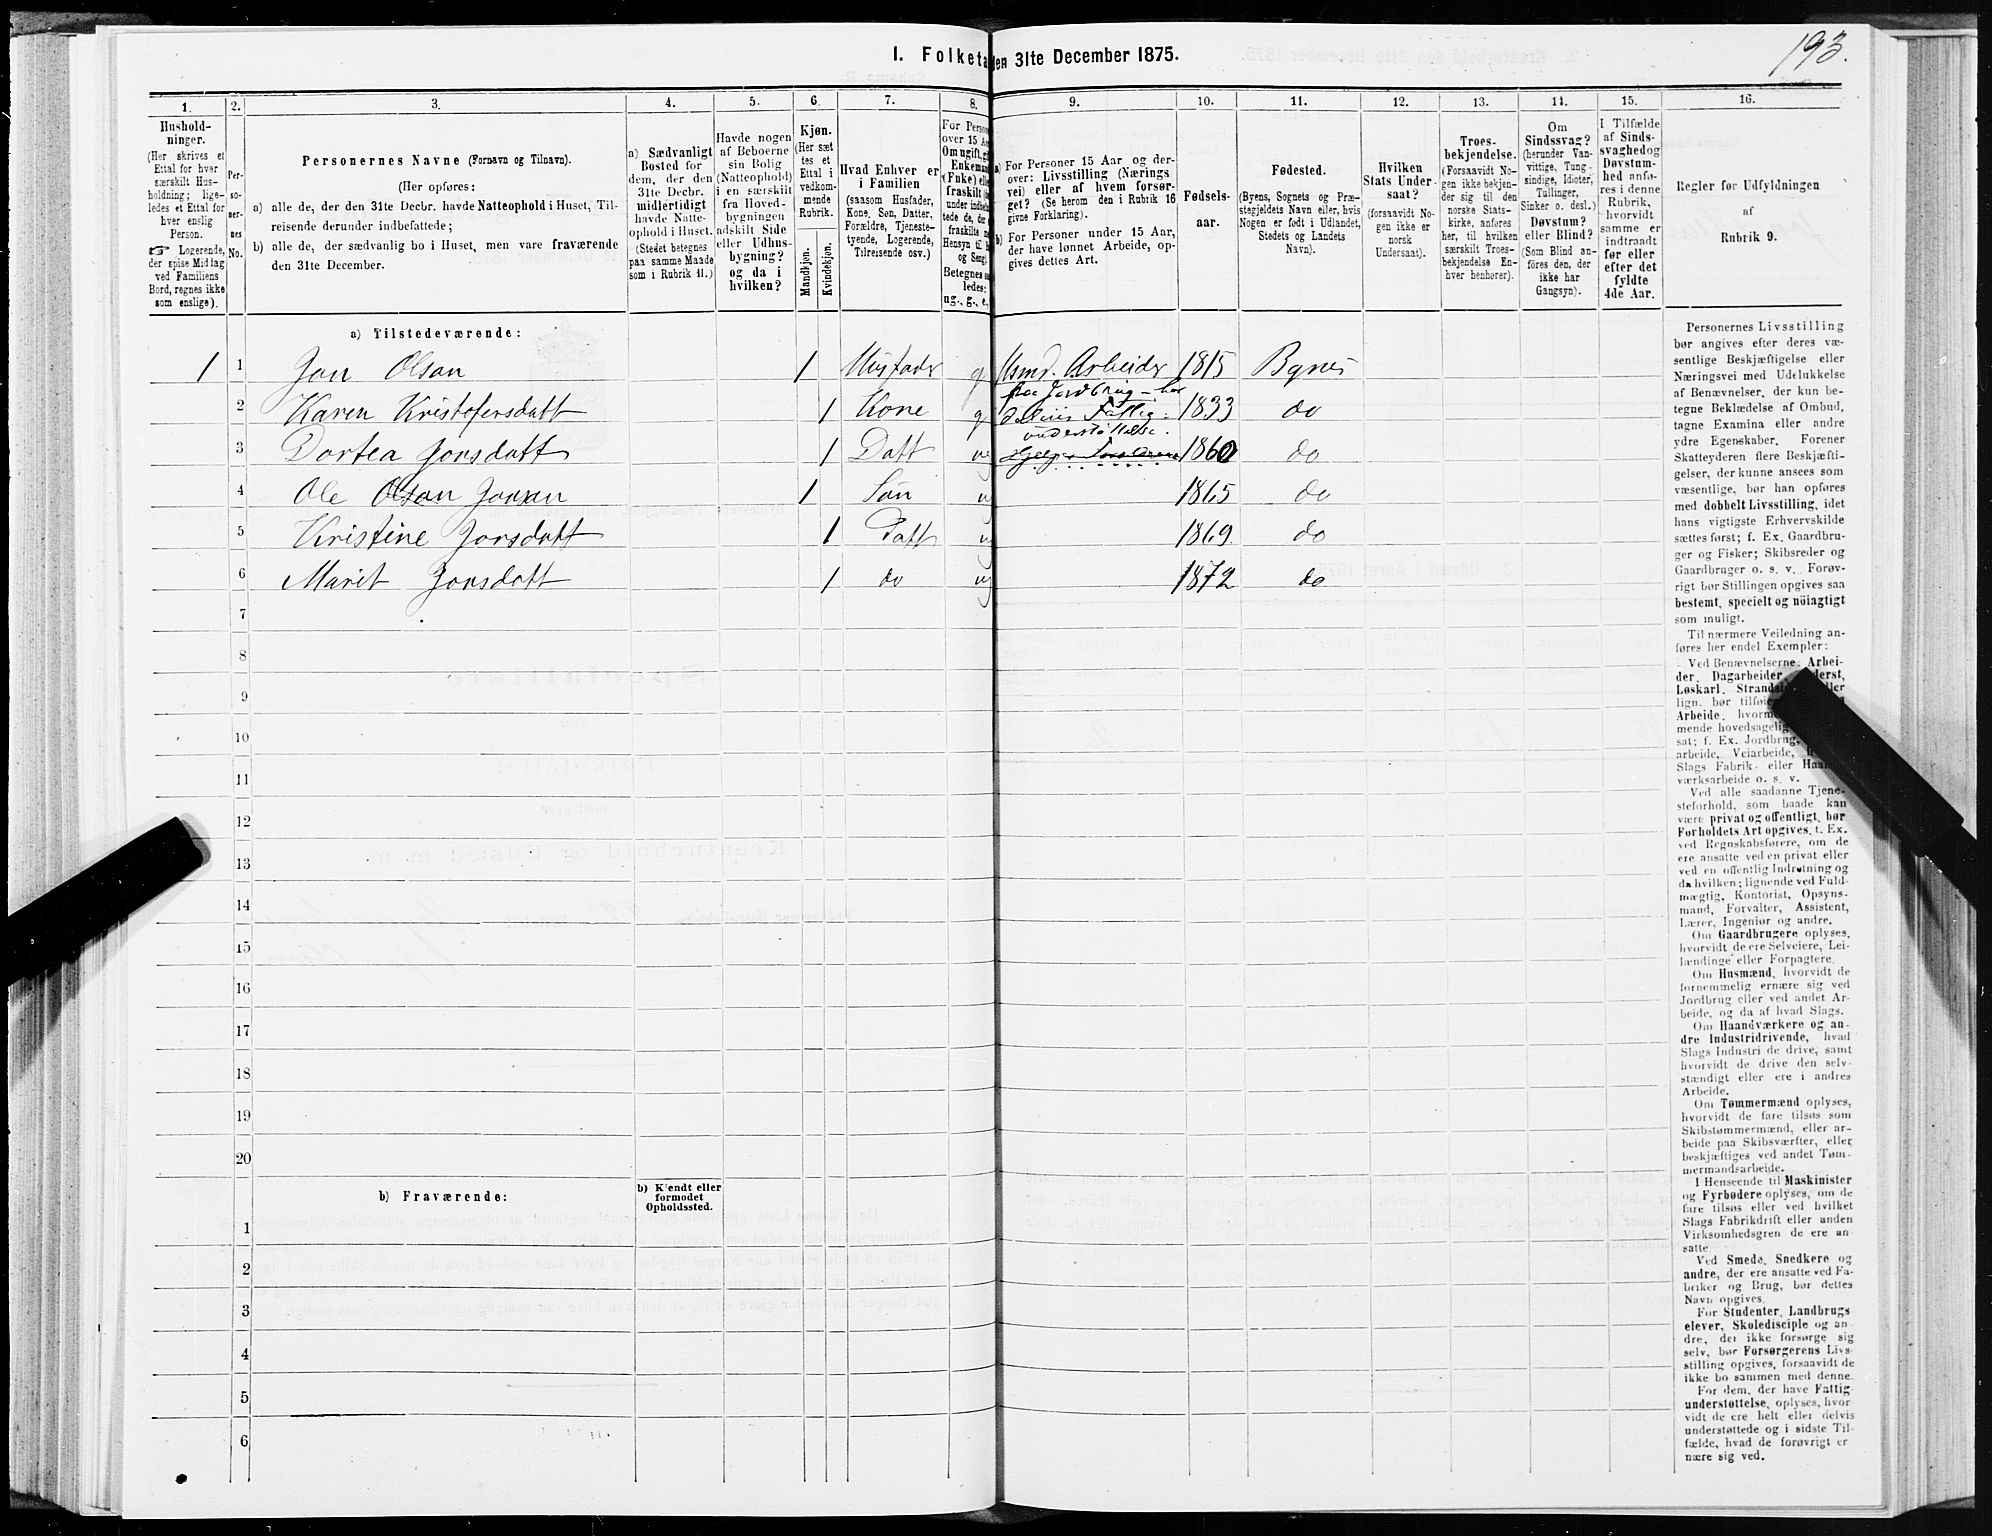 193.
1. Folketa den 31te December 1875.
1. 2. 3. 4. 5. 6. 7. 8. 9. 10. 11. 12. 13. 14. 15. 16.
Hushold-
ninger.
(Her skrives et
Ettal for hver
særskilt Hus-
holdning; lige-
ledes et Ettal for
hver enslig
Person.
☞ Logerende,
der spise Middag
ved Familiens
Bord, regnes ikke
som enslige).
Per-
so-
ner-
nes
No.
Personernes Navne (Fornavn og Tilnavn).
(Her opføres:
a) alle de, der den 31te Decbr. havde Natteophold i Huset, Til-
reisende derunder indbefattede;
b) alle de, der sædvanlig bo i Huset, men vare fraværende
den 31te December.
a) Sædvanligt
Bosted for
dem, der den
31te Decbr.
midlertidigt
havde Natte-
ophold i Huset.
(Stedet betegnes
paa samme Maade
som i Rubrik 11.)
Havde nogen
af Beboerne
sin Bolig
(Natteophold)
i en særskilt
fra Hoved-
bygningen
adskilt Side
eller Udhus-
bygning?
og da i
hvilken?
Kjøn.
(Her sæt
tes et
Ettal i
vedkom-
mende
Rubrik.
Mandkjøn.
Kvindekjøn.
Hvad Enhver er
i Familien
(saasom Husfader,
Kone, Søn, Datter,
Forældre, Tjeneste-
tyende, Logerende,
Tilreisende osv.)
For Person
over 15 Aa
Om ugift, gi
Enkeman
(Enke) elle
fraskilt
Betegnes s
ledes:
ug., g., e.,
a) For Personer 15 Aar og der-
over: Livsstilling (Nærings
vei) eller af hvem forsør-
get? (Se herom den i Rubrik 16
givne Forklaring).
b) For Personer under 15 Aar,
der have lønnet Arbeide, op-
gives dettes Art.
Fødsels-
aar.
Fødested.
(Byens, Sognets og Præ-
stegjeldets Navn eller, hvis
Nogen er født i Udlandet,
Stedets og Landets
Navn).
Hvilken
Stats Under-
saat?
(forsaavidt No-
gen ikke er
norsk
Undersaat).
Troes-
bekjendelse.
(Forsaavidt No-
gen ikke bekjen-
der sig til den
norske Stats-
kirke, anføres
her, til hvilken
særskilt Troes-
bekjendelse En-
hver henhører).
Om
Sindssvag?
(herunder Van-
vittige, Tung-
sindige, Idioter,
Tullinger,
Sinker o. desl.)
Døvstum?
eller Blind?
(Som Blind an-
føres den, der
ikke har
Gangsyn).
I Tilfælde
af Sinds-
svaghed og
Døvstum-
hed anfø-
res i denne
Rubrik,
hvorvidt
samme er
indtraadt
før eller
efter det
fyldte
4de Aar.
Regler for Udfyldningen
af
Rubrik 9.
a) Tilstedeværende:
1 1 Jon Olsen 1 Husfader g Husmd. Arbeider 1815 Bynes
fra Jordbrug – har
2 Karen Kristofersdatt 1 Kone g delvis Fattig- 1833 do
understøttelse.
3 Dortea Jonsdatt 1 Datt ug Hjelper Forældrene 1860 do
4 Ole Olsen Jonsen 1 Søn ug 1865 do
5 Kristine Jonsdatt 1 Datt ug 1869 do
6 Marit Jonsdatt 1 do ug 1872 do
7
8
9
10
11
12
13
14
15
16
17
18
19
20
b) Fraværende:
b) Kjendt eller
formodet
Opholdssted.
1
2
3
4
5
6
Personernes Livsstilling
bør angives efter deres væ-
sentlige Beskjæftigelse eller
Næringsvei med Udelukkelse
af Benævnelser, der kun be-
tegne Beklædelse af Ombud,
tagne Examina eller andre
ydre Egenskaber. Forener
Skatteyderen flere Beskjæfti-
gelser, der kunne ansees som
væsentlige, bør han opføres
med dobbelt Livsstilling, idet
hans vigtigste Erhvervskilde
sættes først; f. Ex. Gaardbru-
ger og Fisker; Skibsreder og
Gaardbruger o. s. v. Forøv-
rigt bør Stillingen opgives saa
bestemt, specielt og nöiagtigt
som muligt.
Til nærmere Veiledning an-
føres her endel Exempler:
Ved Benævnelserne: Arbei-
der, Dagarbeider, Inderst,
Løskarl, Strandsi eller
lign. bør tilføie
Arbeide, hvorm
mende hovedsagelig
sat; f. Ex. Jordbrug,
arbeide, Veiarbeide,
Slags Fabrik- eller Haand-
værksarbeide o. s. v.
Ved alle saadanne Tjene-
steforhold, som baade kan
være privat og offentligt, bør
Forholdets Art opgives, t. Ex.
ved Regnskabsførere, om de
ere ansatte ved en privat eller
ved en offentlig Indretning og
da hvilken; lignende ved Fuld-
mægtig, Kontorist, Opsyns-
mand, Forvalter, Assistent,
Lærer, Ingeniør og andre.
Om Gaardbrugere oplyses,
hvorvidt de ere Selveiere, Lei-
lændinge eller Forpagtere.
Om Husmænd, hvorvidt de
fornemmelig ernære sig ved
Jordbrug eller ved andet Ar-
beide, og da af hvad Slags.
Om Haandværkere og an-
dre Industridrivende, hvad
Slags Industri de drive, samt
hvorvidt de drive den selv-
stændigt eller ere i andres
Arbeide.
Om Tømmermænd oplyses,
hvorvidt de fare tilsøs som
Skibstømmermænd, eller ar-
beide paa Skibsværfter, eller
beskjæftiges ved andet Tøm-
mermandsarbeide.
I Henseende til Maskinister
og Fyrbødere oplyses, om de
fare tilsøs eller ved hvilket
Slags Fabrikdrift eller anden
Virksomhedsgren de ere an-
satte.
Ved Smede, Snedkere og
andre, der ere ansatte ved Fa-
briker og Brug, bør dettes
Navn opgives.
For Studenter, Landbrugs
elever, Skoledisciple og an-
dre, der ikke forsørge sig
selv, bør Forsørgerens Livs-
stilling opgives, forsaavidt de
ikke bo sammen med denne.
For dem, der have Fattig-
understøttelse, oplyses, hvor-
vidt de ere helt eller delvis
understøttede og i sidste Til-
fælde, hvad de forøvrigt er
nære sig ved.